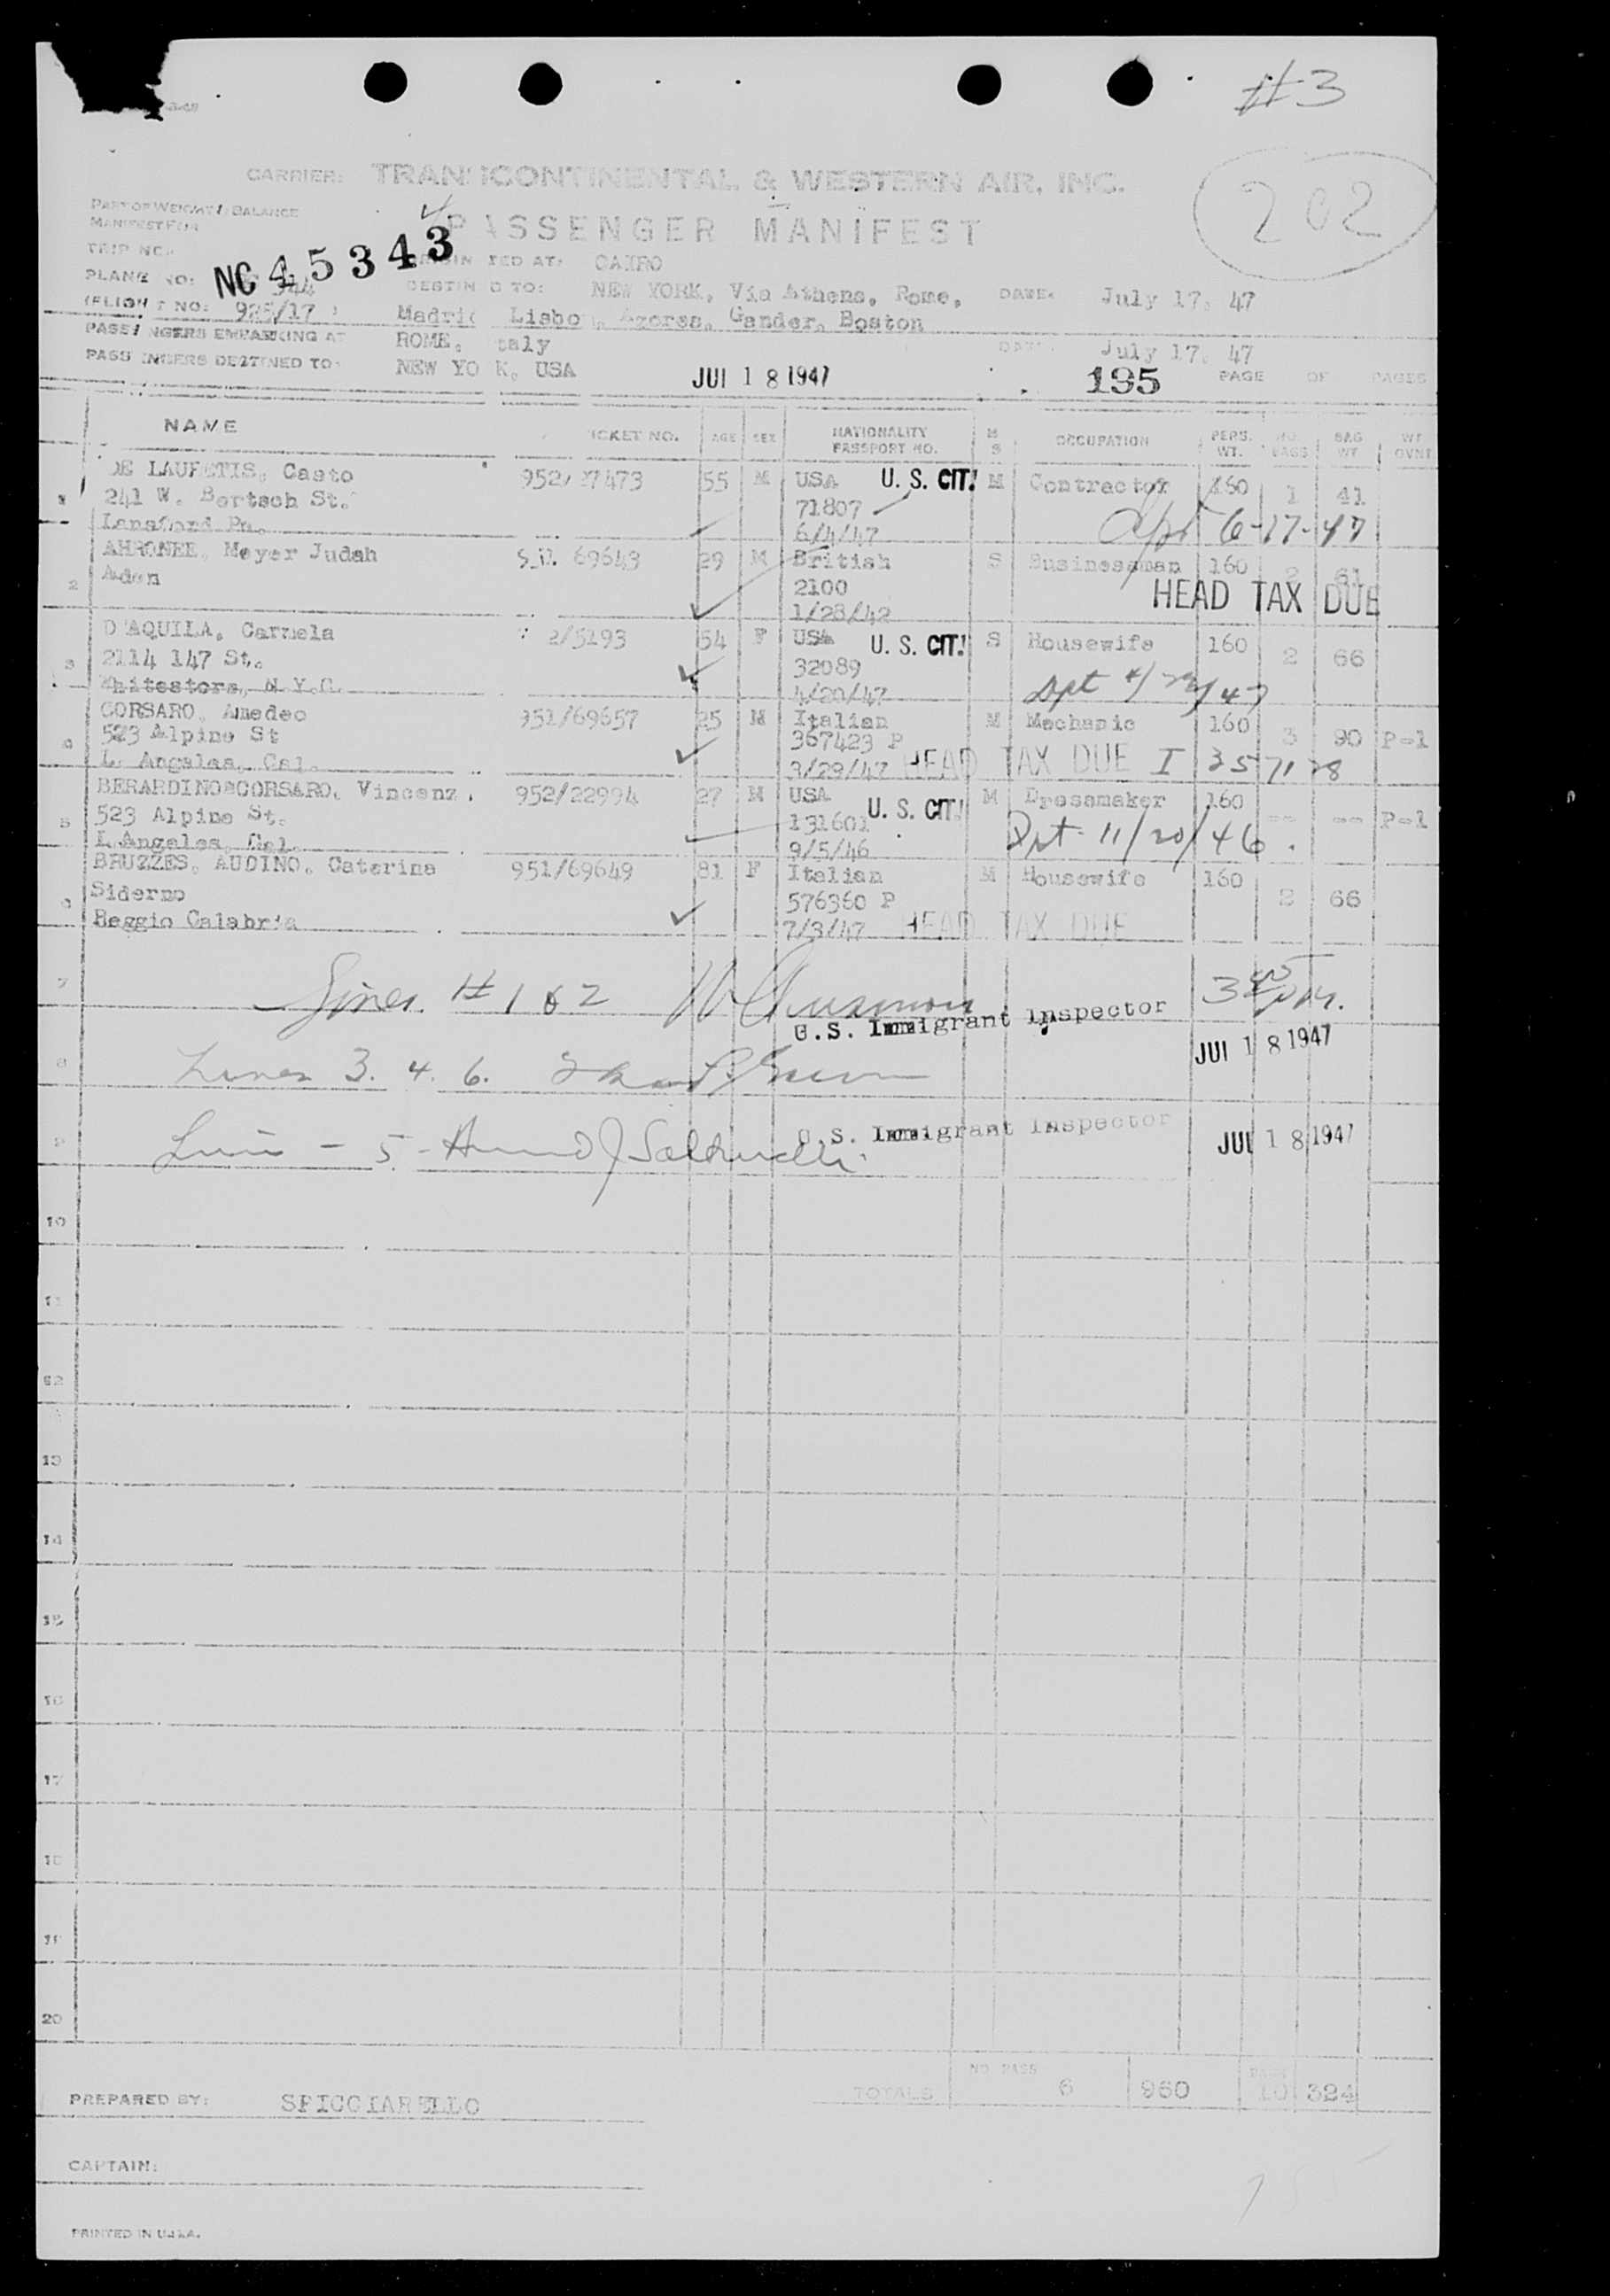 #3
CARRIER: TRANSCONTINENTAL & WESTERN AIR, INC.
202
PART OF WEIGHT & BALANCE
MANIFEST FOR
PASSENGER MANIFEST
TRIP NO.
NC 45343
ORIGINATED AT: CAIRO
PLANE NO: 344
DESTINED TO: NEW YORK, Via Athens, Rome, DATE: July 17, 47
(FLIGHT NO: 925/17)
Madrid Lisbon, Azores, Gander, Boston
PASSENGERS EMBARKING AT ROME, Italy DATE: July 17, 47
PASSENGERS DESTINED TO: NEW YORK, USA JUL 18 1947 195 PAGE OF PAGES
NAME TICKET NO. AGE SEX NATIONALITY PASSPORT NO. M S OCCUPATION PERS. WT. NO. BAGS BAG WT
1 Casto 952/27473 55 M USA U. S. CIT! M Contractor 160 1 41
241 W. Bertsch St. 71807
Lansford Pa. 6/4/47 6-17-47
2 AHRONEE, Meyer Judah 69643 29 M British S Businessman 160 2 61
Aden 2100 HEAD TAX DUE
1/28/42
3 D'AQUILA, Carmela 2/5193 54 F USA U. S. CIT! S Housewife 160 2 66
2114 147 St. 32089
Whitestore, N.Y.C. 4/20/47 Dpt
4 CORSARO, Amedeo 951/69657 25 M Italian M Mechanic 160 3 90 P-1
523 Alpine St 367423 P
L. Angeles, Cal. 3/29/47 HEAD TAX DUE I 357128
5 BERARDINO=CORSARO, Vincenz. 952/22994 27 M USA U. S. CIT! M Dressmaker 160 -- -- P-1
523 Alpine St. 131601
L.Angeles, Cal. 9/5/46 Dpt 11/20/46.
6 BRUZZES, AUDINO, Caterina 951/69649 81 F Italian M Housewife 160 2 66
Siderno 576360 P
Reggio Calabria 7/3/47 HEAD TAX DUE
7 Lines # 1 & 2
U.S. Immigrant Inspector
JUL 18 1947
8 Lines 3. 4. 6.
U.S. Immigrant Inspector
9 Line - 5 - JUL 18 1947
10
11
12
13
14
15
16
17
18
19
20
TOTALS NO. PASS 6 960 BAGS 10 324
PREPARED BY: SPICCIARELLO
CAPTAIN:
PRINTED IN U.S.A.